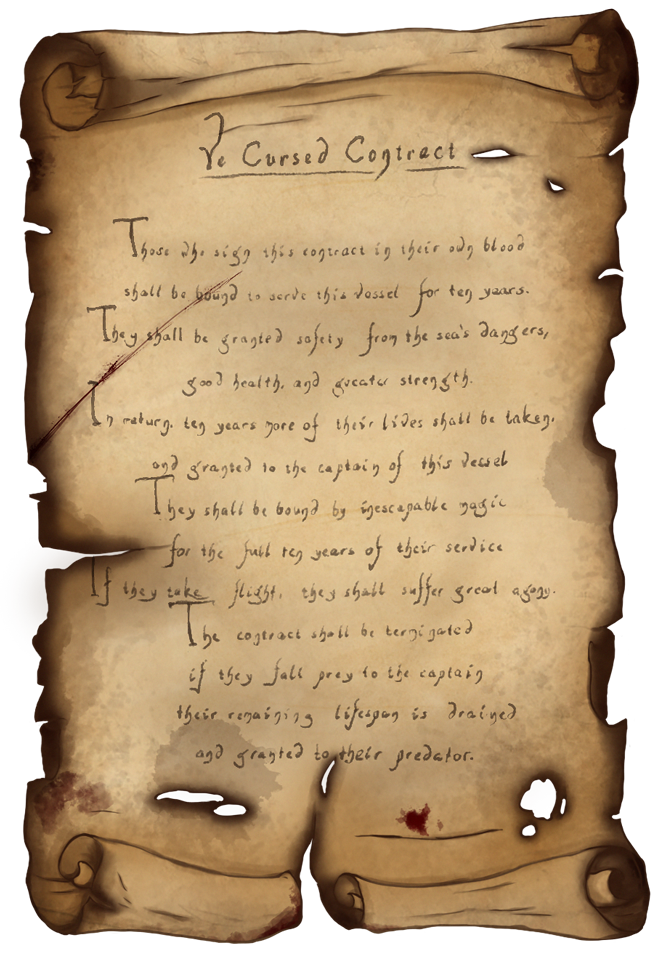 Ye Cursed Contract
Those who sign this contract in their own blood
shall be bound to serve this vessel for ten years.
They shall be granted safety from the sea's dangers,
good health, and greater strength.
In return, ten years more of their lives shall be taken,
and granted to the captain of this vessel
They shall be bound by inescapable magic
for the full ten years of their service
If they take flight, they shall suffer great agony.
The contract shall be terminated
if they fall prey to the captain
their remaining lifespan is drained
and granted to their predator.